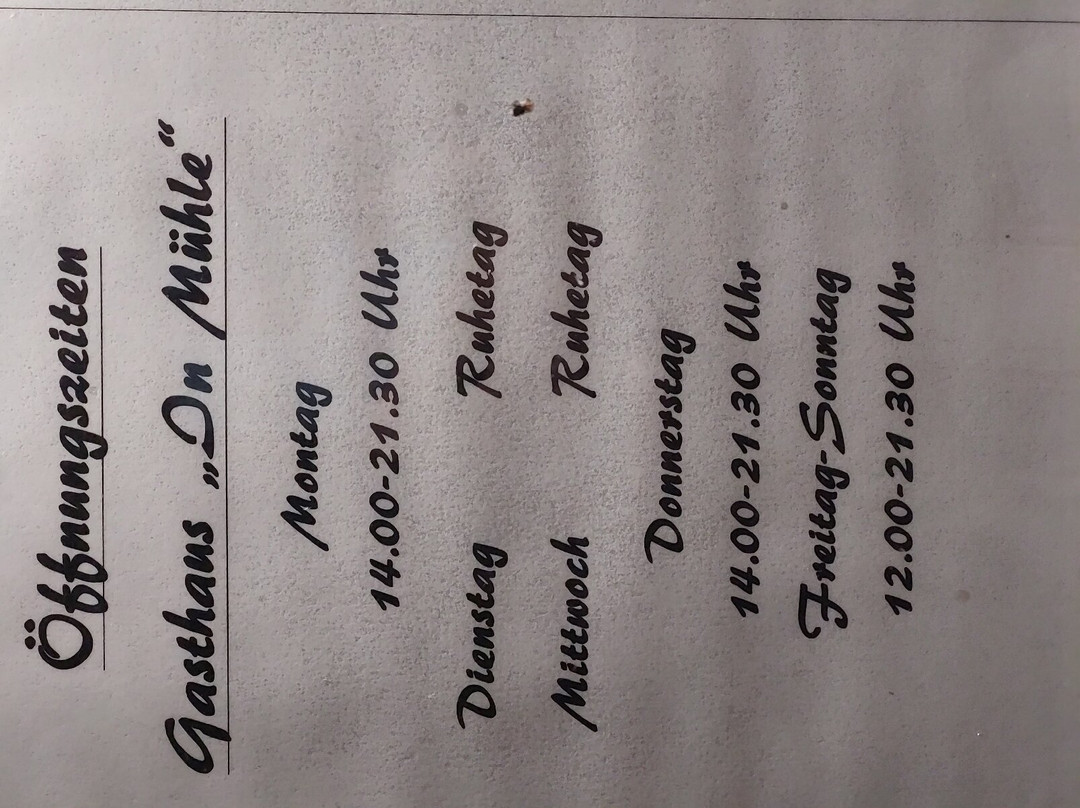 Öffnungszeiten
Gasthaus „In Mühle“
Montag
14.00-21.30 Uhr
Dienstag Ruhetag
Mittwoch Ruhetag
Donnerstag
14.00-21.30 Uhr
Freitag-Sonntag
12.00-21.30 Uhr